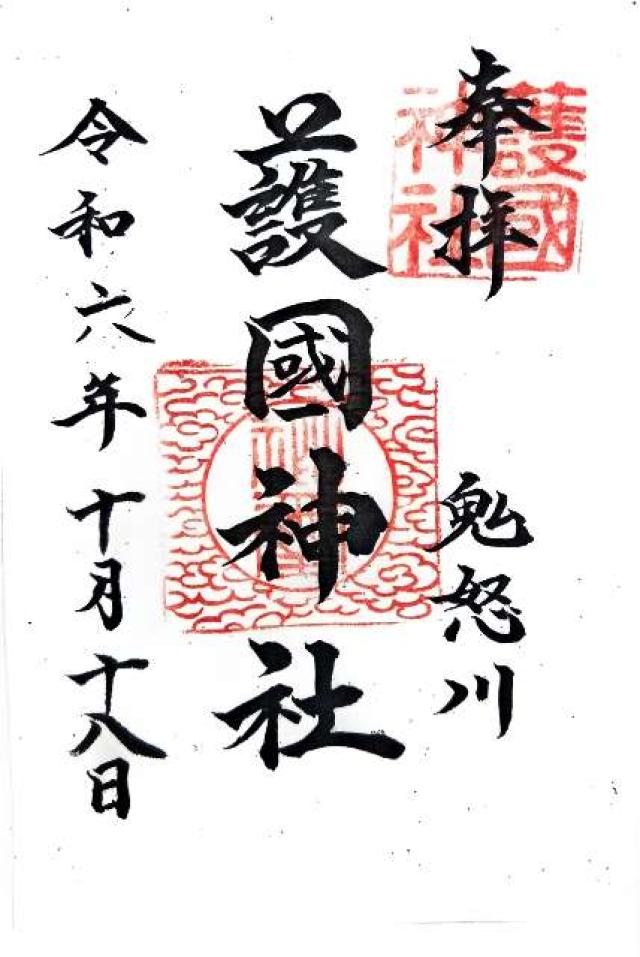 奉拝
鬼怒川
護國神社
令和六年十月十八日
護國
神社